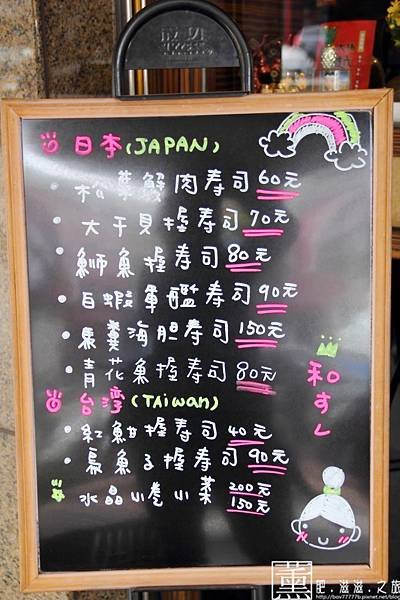 日本(JAPAN)
松葉蟹肉寿司60元
大干貝握寿司70元
鰤魚握寿司80元
白蝦軍艦寿司90元
馬糞海胆寿司150元
青花魚握寿司80元
台湾(TAIWAN)
紅魽握寿司40元
烏魚子握寿司90元
水晶小卷小菜200元
150元
和すし
薰
肥.滋滋.之旅